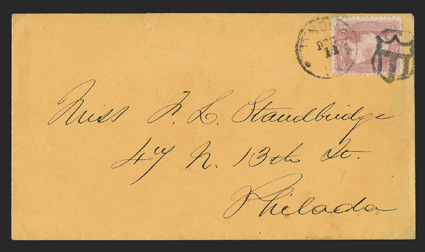 DEC
Miss F. L. Standbridge
47 N. 13th St.
Philada